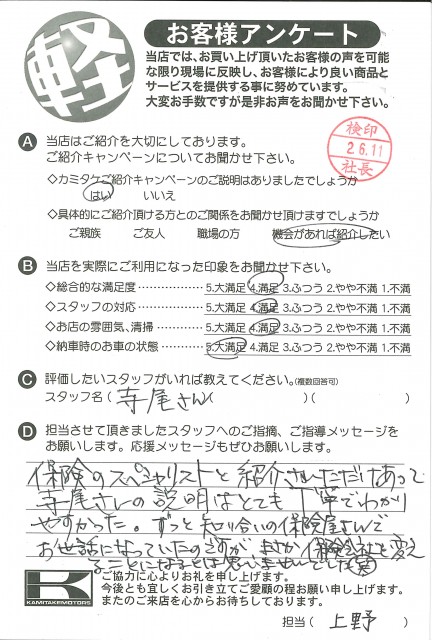 軽
お客様アンケート
当店では、お買い上げ頂いたお客様の声を可能
な限り現場に反映し、お客様により良い商品と
サービスを提供する事に努めています。
大変お手数ですが是非お声をお聞かせ下さい。
検印
26.11
社長
A 当店はご紹介を大切にしております。
ご紹介キャンペーンについてお聞かせ下さい。
◇カミタケご紹介キャンペーンのご説明はありましたでしょうか
はい いいえ
◇具体的にご紹介頂ける方とのご関係をお聞かせ頂けますでしょうか
ご親族 ご友人 職場の方 機会があれば紹介したい
B 当店を実際にご利用になった印象をお聞かせ下さい。
◇総合的な満足度 5.大満足 4.満足 3.ふつう 2.やや不満 1.不満
◇スタッフの対応 5.大満足 4.満足 3.ふつう 2.やや不満 1.不満
◇お店の雰囲気、清掃 5.大満足 4.満足 3.ふつう 2.やや不満 1.不満
◇納車時のお車の状態 5.大満足 4.満足 3.ふつう 2.やや不満 1.不満
C 評価したいスタッフがいれば教えてください。(複数回答可)
スタッフ名 ( 寺尾さん )( )( )
D 担当させて頂きましたスタッフへのご指摘、ご指導メッセージを
お願いします。応援メッセージもぜひお願いします。
保険のスペシャリストと紹介されただけあって
寺尾さんの説明はとても丁寧でわかり
やすかった。ずっと知り合いの保険屋さんで
お世話になっていたのですが まさか保険会社を変え
ることになるとは思いませんでした(笑)
K
KAMITAKEMOTORS
ご協力に心よりお礼を申し上げます。
今後とも宜しくお引き立てご愛顧の程お願い申し上げます。
またのご来店を心からお待ちしております。
担当 ( 上野 )